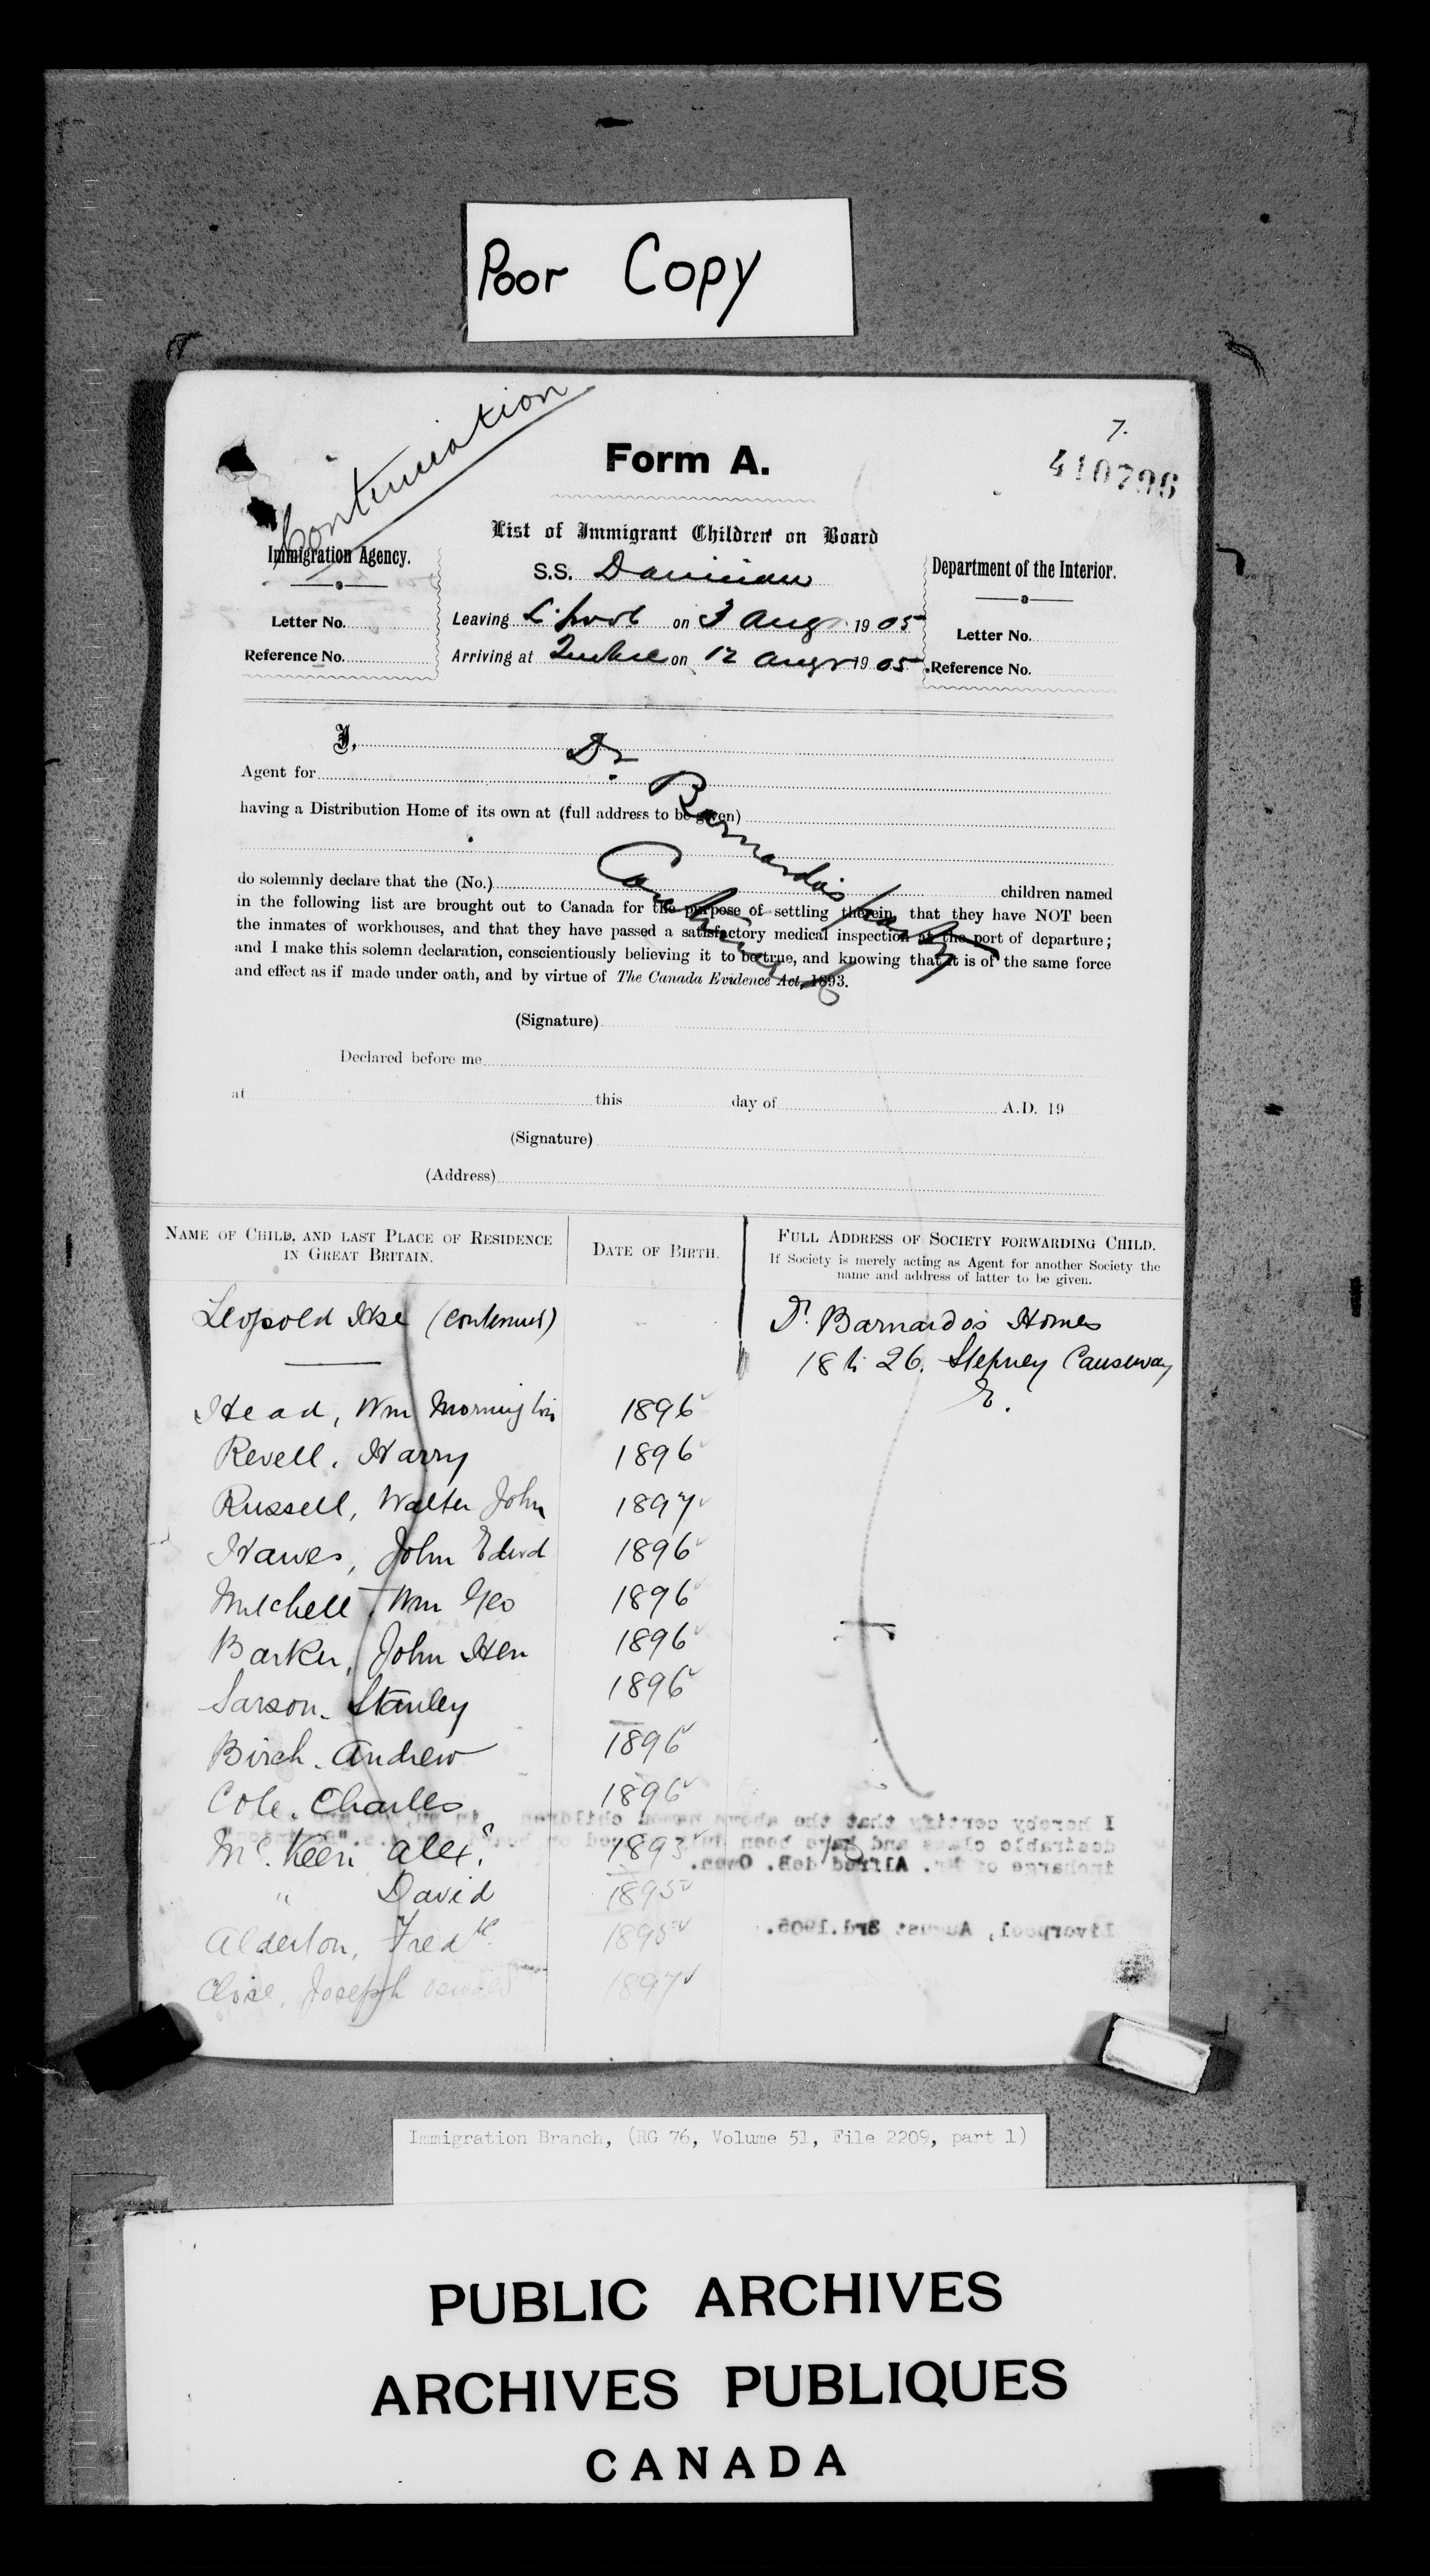 Poor Copy
Continuation
7.
410796
Form A.
List of Immigrant Children on Board
Immigration Agency.
S.S. Dominion
Department of the Interior.
Letter No.
Leaving L'pool on 3 Aug 1905
Letter No.
Reference No.
Arriving at Quebec on 12 Aug 1905
Reference No.
I,
Dr Barnardo's Party
Continued
Agent for
having a Distribution Home of its own at (full address to be given)
do solemnly declare that the (No.) children named
in the following list are brought out to Canada for the purpose of settling therein, that they have NOT been
the inmates of workhouses, and that they have passed a satisfactory medical inspection at the port of departure;
and I make this solemn declaration, conscientiously believing it to be true, and knowing that it is of the same force
and effect as if made under oath, and by virtue of The Canada Evidence Act, 1893.
(Signature)
Declared before me
at this day of A.D. 19
(Signature)
(Address)
NAME OF CHILD, AND LAST PLACE OF RESIDENCE
IN GREAT BRITAIN.
DATE OF BIRTH.
FULL ADDRESS OF SOCIETY FORWARDING CHILD.
If Society is merely acting as Agent for another Society the
name and address of latter to be given.
Leopold Hse (continued)
Dr. Barnardo's Homes
18 to 26. Stepney Causeway
E.
Head, Wm Mornington 1896
Revell, Harry 1896
Russell, Walter John 1897
Hawes, John Edwd 1896
Mitchell, Wm Geo 1896
Barker, John Hen 1896
Sarson. Stanley 1896
Birch. Andrew 1896
Cole. Charles 1896
McKeen Alexr. 1893
" David 1895
Alderton, Fredk. 1895
Close, Joseph Oswald 1897
I hereby certify that the above named children
desirable class and have been
incharge of Mr. Alfred deB. Owen.
Liverpool, August 3rd.1905.
Immigration Branch, (RG 76, Volume 51, File 2209, part 1)
PUBLIC ARCHIVES
ARCHIVES PUBLIQUES
CANADA